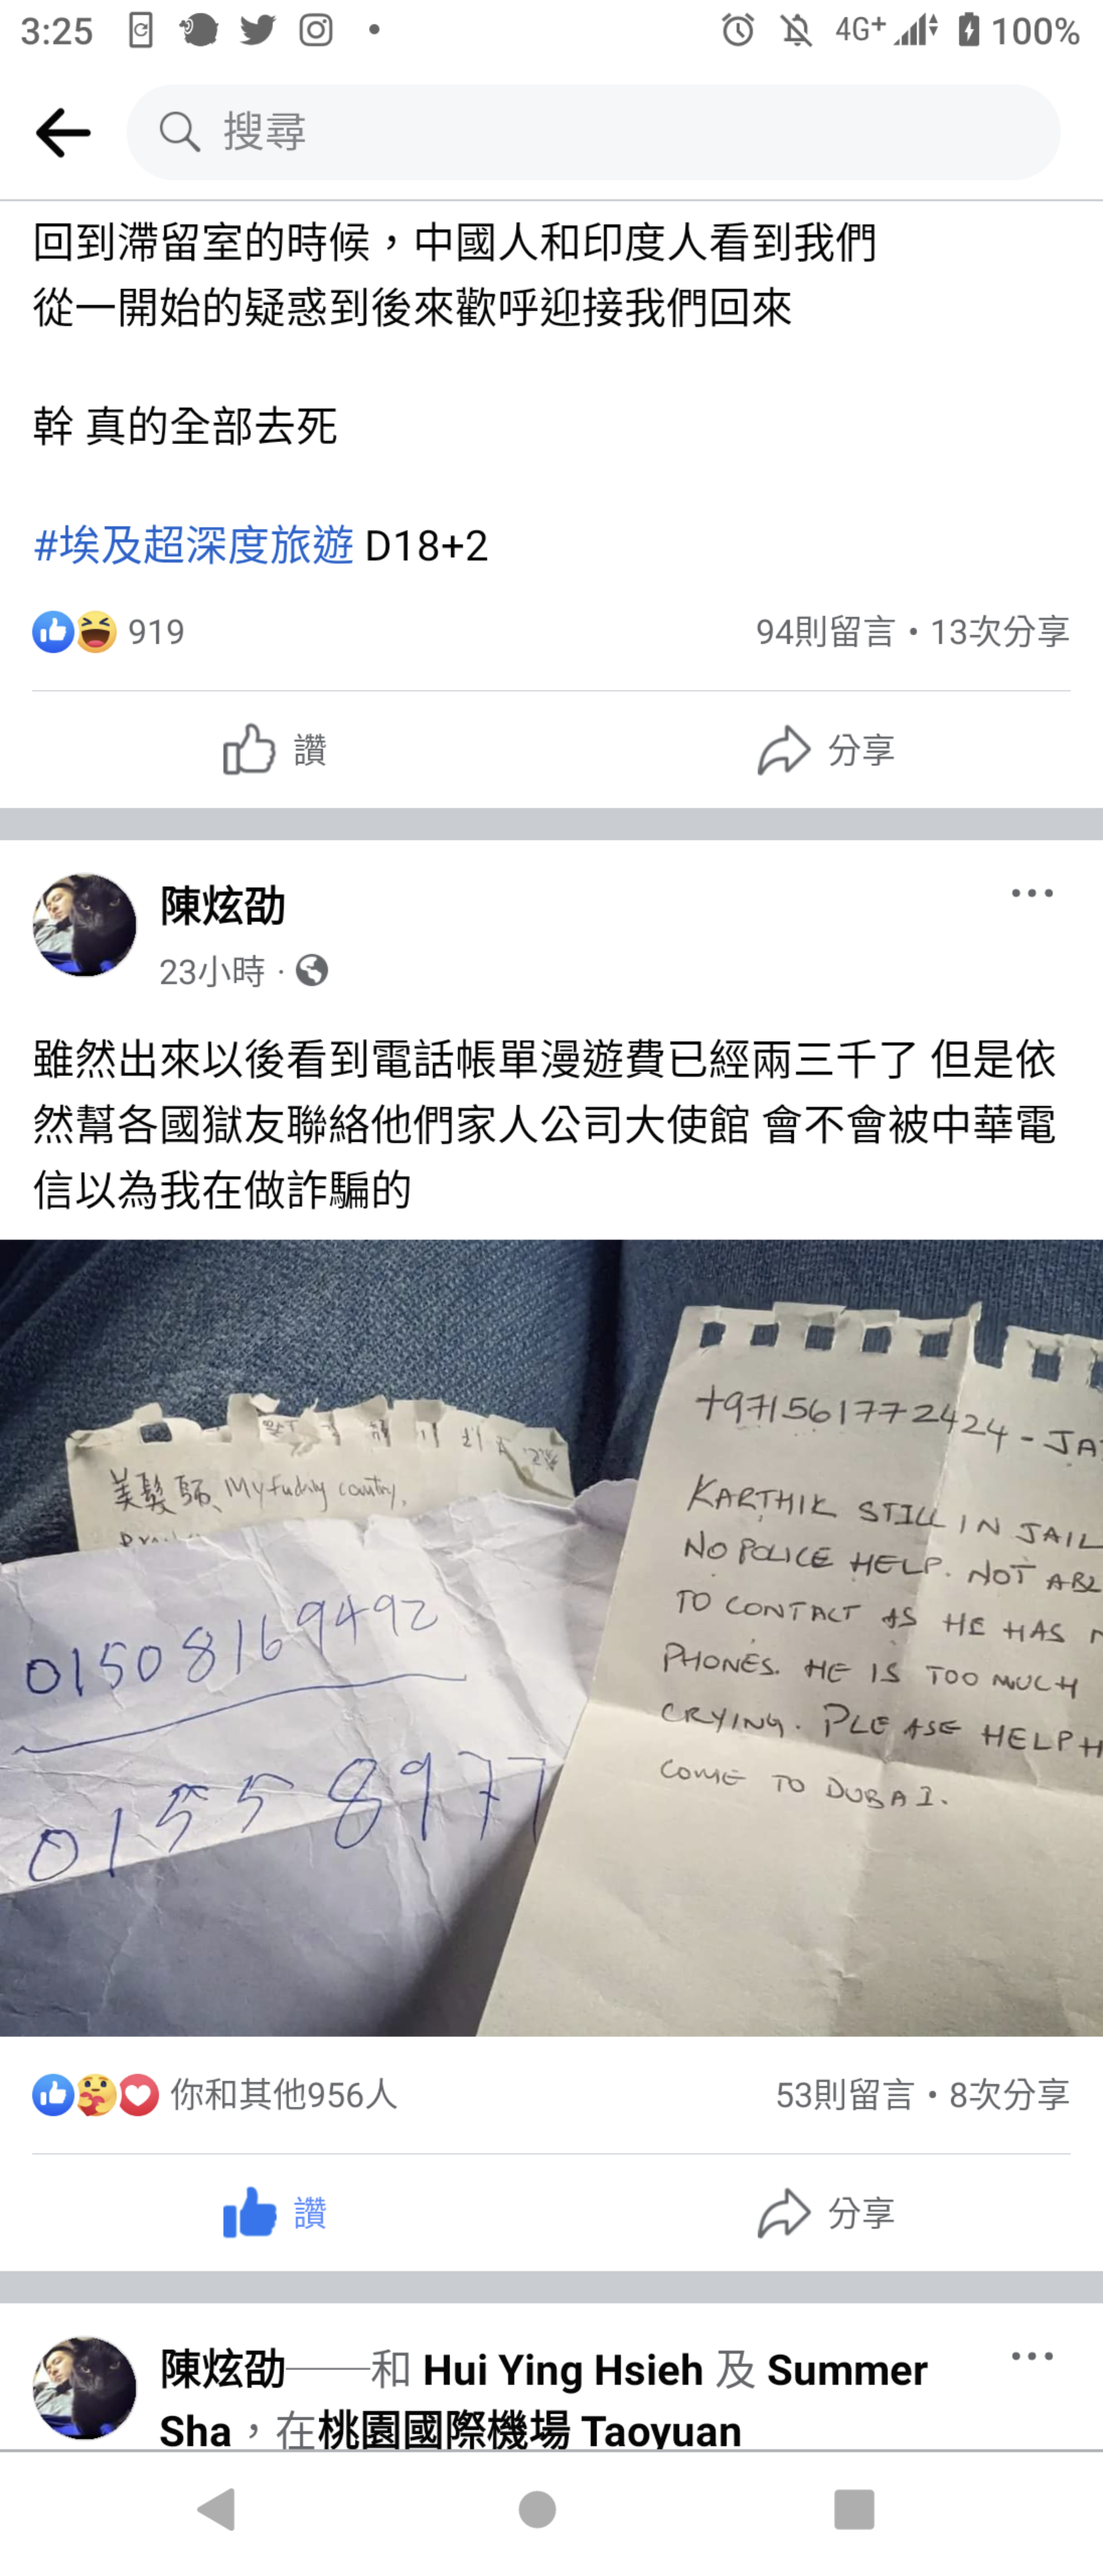 3:25
4G+
100%
搜尋
回到滯留室的時候，中國人和印度人看到我們
從一開始的疑惑到後來歡呼迎接我們回來
幹 真的全部去死
#埃及超深度旅遊 D18+2
919
94則留言・13次分享
讚
分享
陳炫劭
23小時 ·
雖然出來以後看到電話帳單漫遊費已經兩三千了 但是依
然幫各國獄友聯絡他們家人公司大使館 會不會被中華電
信以為我在做詐騙的
美髮師、My
country,
01508169492
0155 8977
+971561772424 - JA
KARTHIK STILL IN JAIL
NO POLICE HELP. NOT ABL
TO CONTACT AS HE HAS N
PHONES. HE IS TOO MUCH
CRYING. PLEASE HELP H
COME TO DUBAI.
你和其他956人
53則留言・8次分享
讚
分享
陳炫劭——和 Hui Ying Hsieh 及 Summer
Sha，在桃園國際機場 Taoyuan